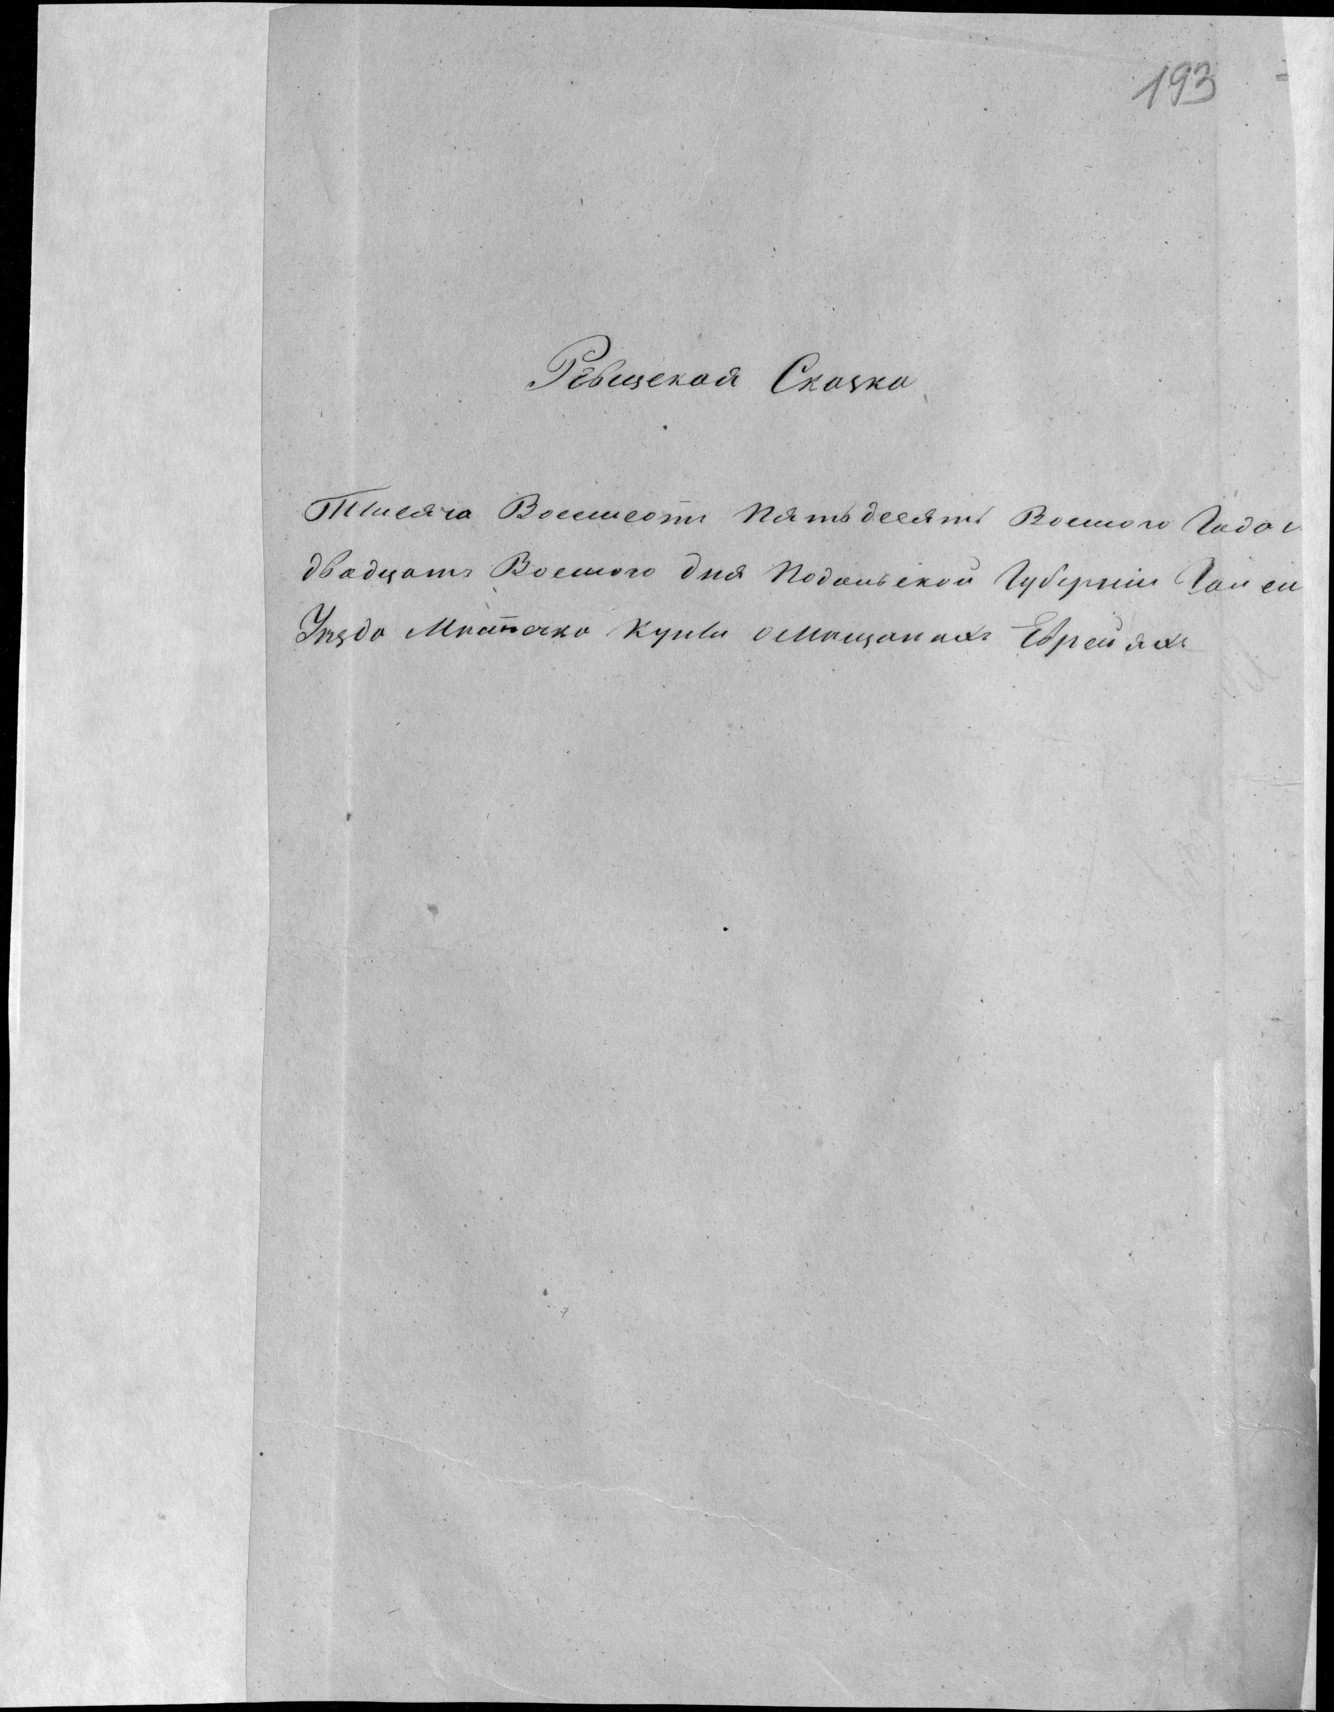 193
Ревизская Сказка
Тысяча Восемсотъ Пятьдесятъ Восмого Года
двадцать Восмого дня Подольской Губернiи
Уѣзда Мѣстечка Купы[на] о Мѣщанахъ Еврейяхъ